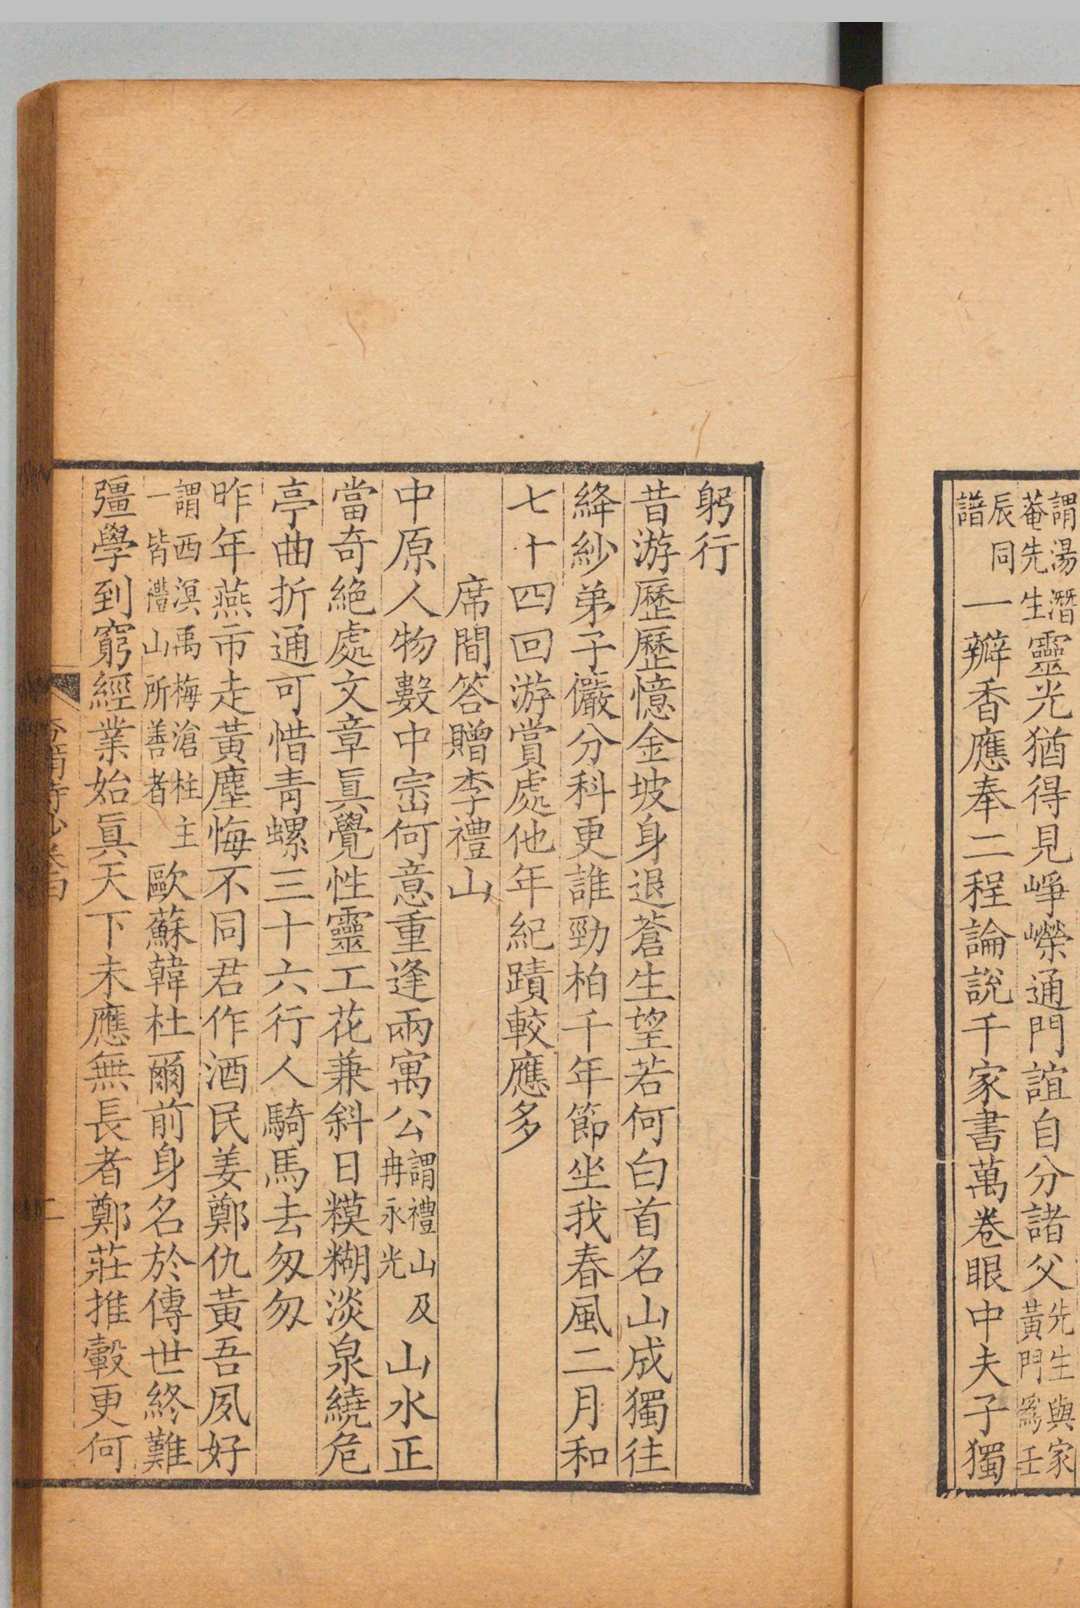 謂湯潛
菴先生
靈光猶得見崢嶸通門誼自分諸父
先生與家
黃門為壬
辰同
譜
一瓣香應奉二程論說千家書萬卷眼中夫子獨
躬行
昔游歷歷憶金坡身退蒼生望若何白首名山成獨往
絳紗弟子儼分科更誰勁柏千年節坐我春風二月和
七十四回游賞處他年紀蹟較應多
席間答贈李禮山
中原人物數中崈何意重逢兩寓公
謂禮山及
冉永光
山水正
當奇絕處文章眞覺性靈工花兼斜日糢糊淡泉繞危
亭曲折通可惜青螺三十六行人騎馬去匆匆
昨年燕市走黃塵悔不同君作酒民姜鄭仇黃吾夙好
謂西溟禹梅滄柱主
一皆禮山所善者
歐蘇韓杜爾前身名於傳世終難
彊學到窮經業始眞天下未應無長者鄭莊推轂更何